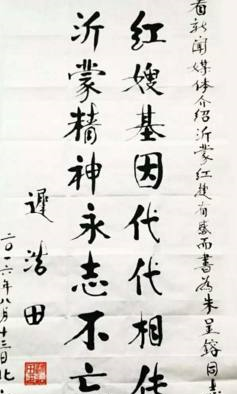 看新闻媒体介绍沂蒙红嫂有感而书为朱呈镕同志
红嫂基因代代相传
沂蒙精神永志不亡
遲浩田
二〇一六年八月十三日北